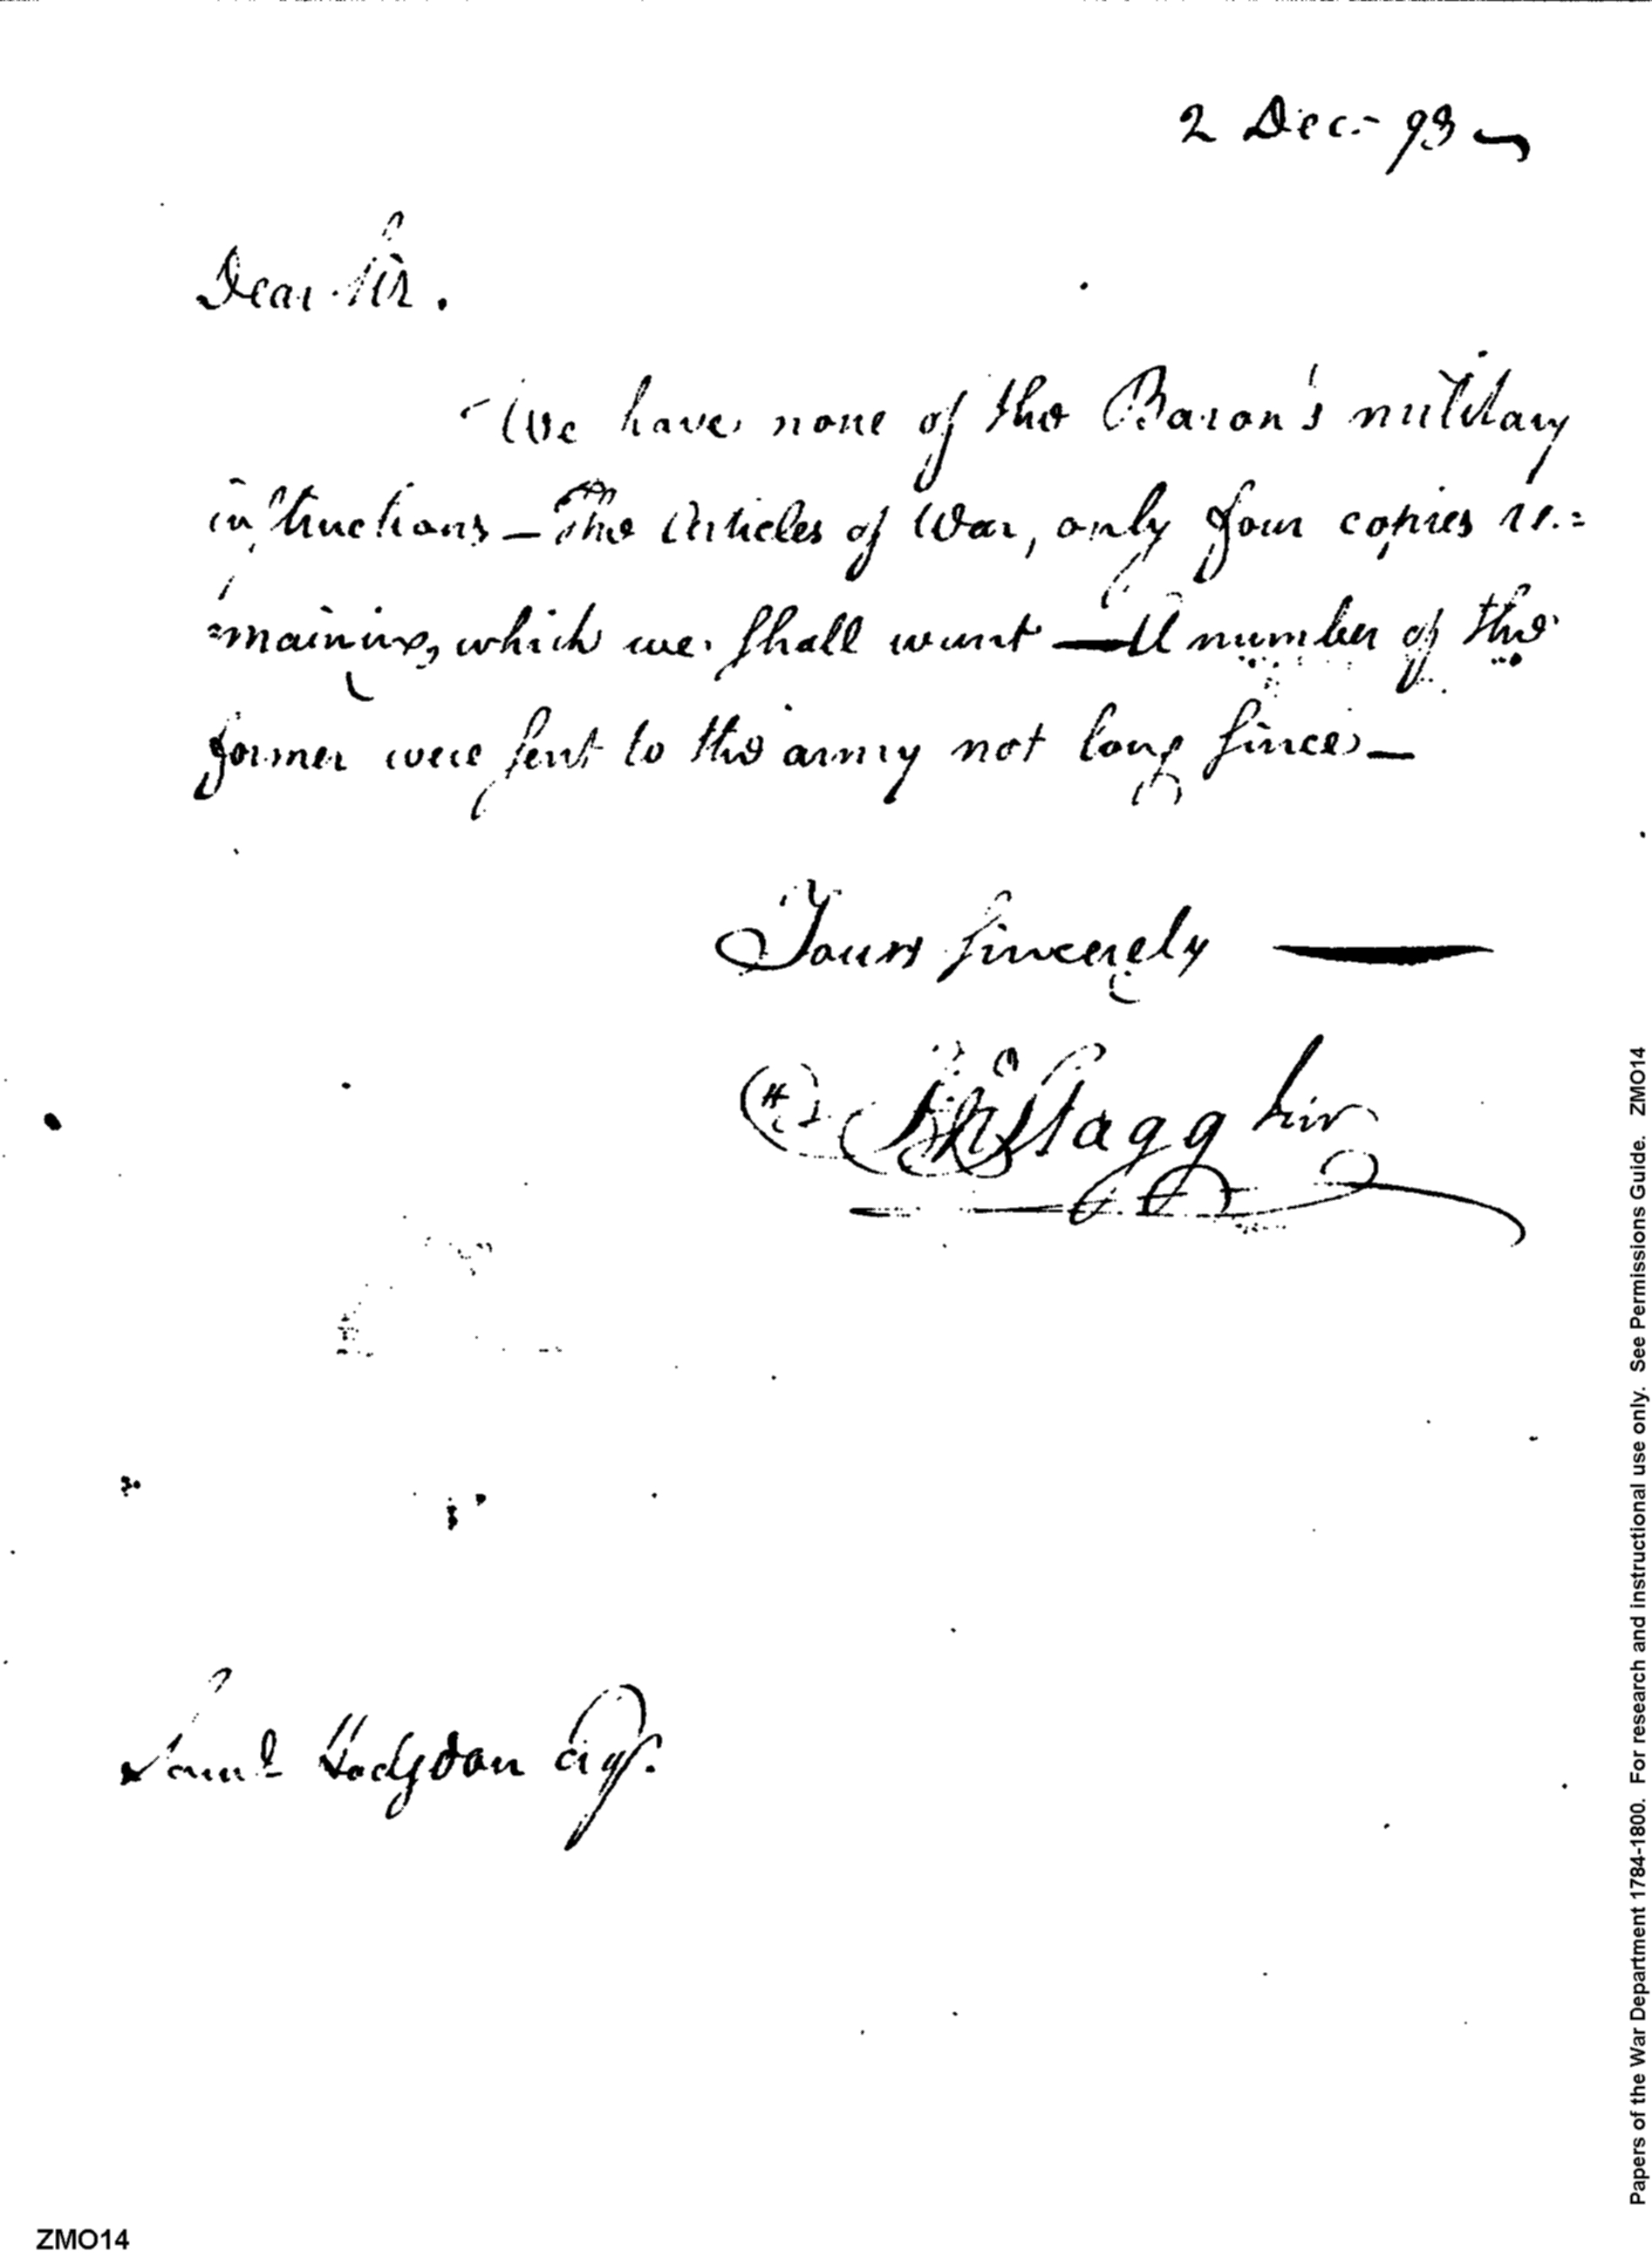 2 Dec:- 93
Dear Sir.
We have none of the Baron's military
instructions — The Articles of War, only four copies re=
=maining, which we shall want — A number of the
former were sent to the army not long since —
Yours sincerely
Jno Stagg Junr
Saml Hodgdon Esqr.
Papers of the War Department 1784-1800. For research and instructional use only. See Permissions Guide. ZMO14
ZMO14